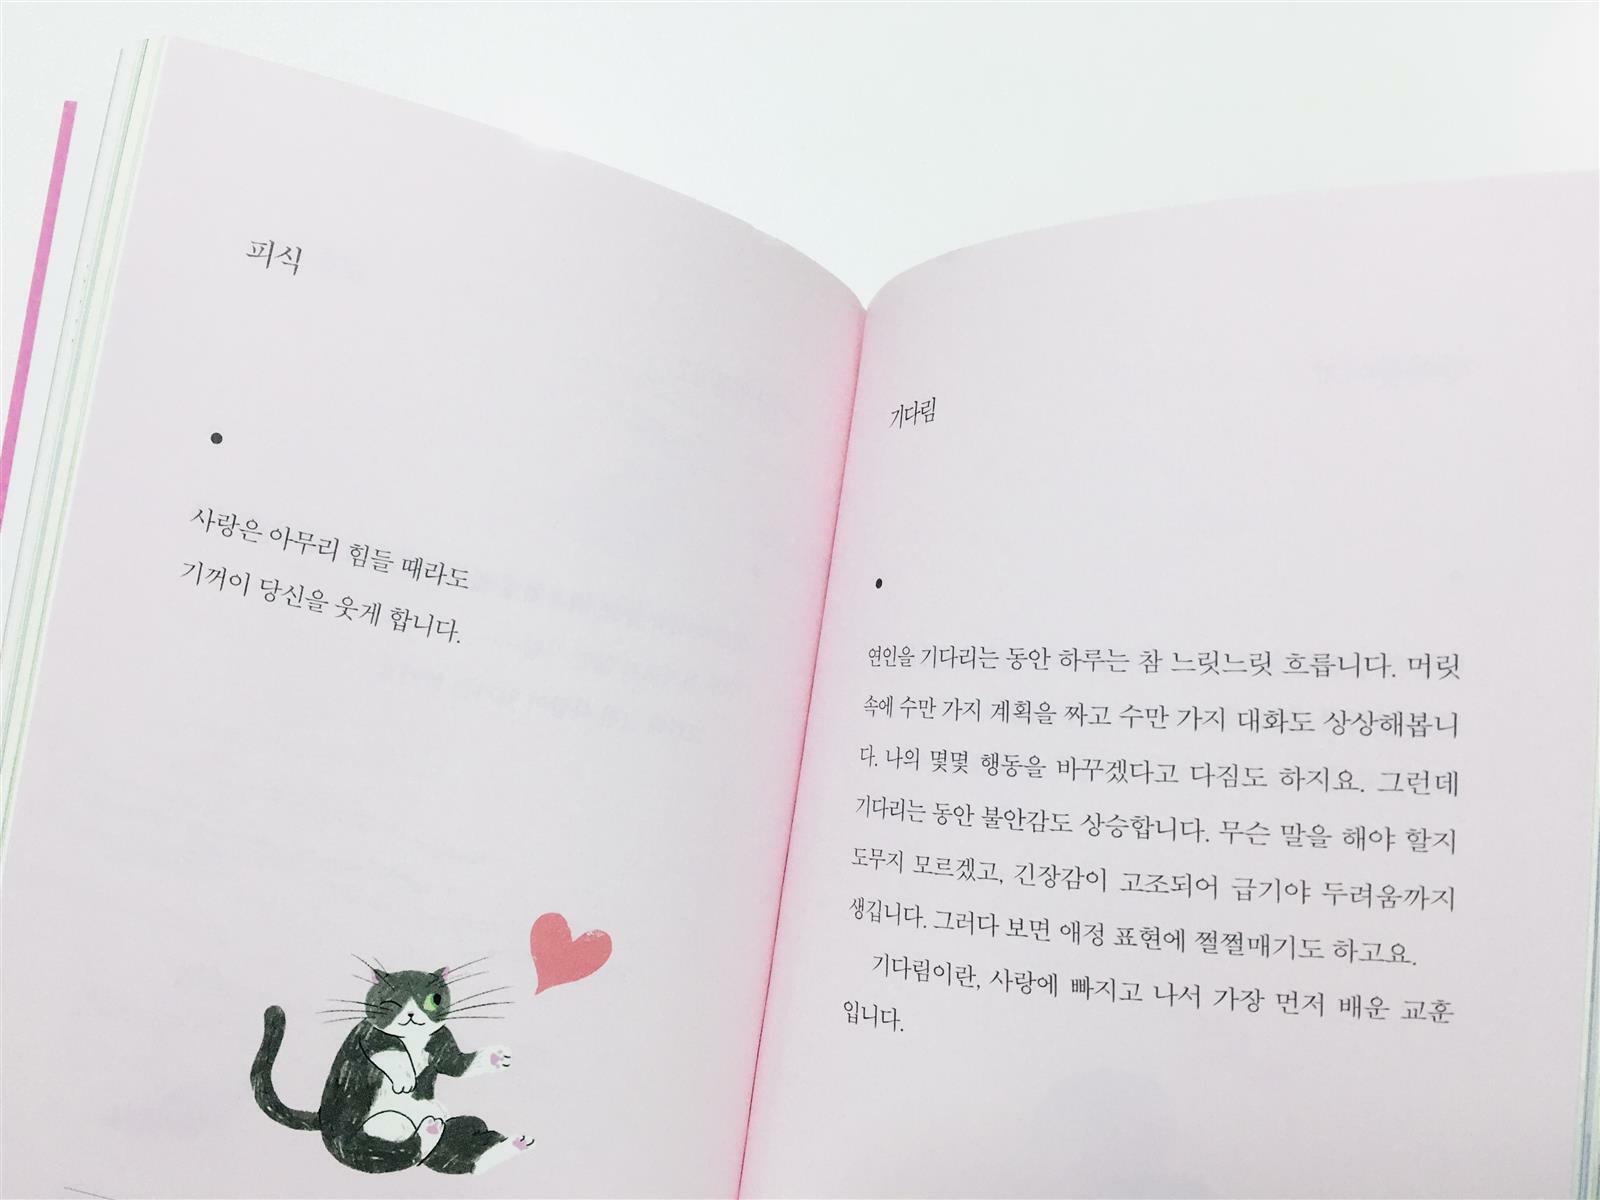 피식
사랑은 아무리 힘들 때라도
기꺼이 당신을 웃게 합니다.
기다림
연인을 기다리는 동안 하루는 참 느릿느릿 흐릅니다. 머릿
속에 수만 가지 계획을 짜고 수만 가지 대화도 상상해봅니
다. 나의 몇몇 행동을 바꾸겠다고 다짐도 하지요. 그런데
기다리는 동안 불안감도 상승합니다. 무슨 말을 해야 할지
도무지 모르겠고, 긴장감이 고조되어 급기야 두려움까지
생깁니다. 그러다 보면 애정 표현에 쩔쩔매기도 하고요.
기다림이란, 사랑에 빠지고 나서 가장 먼저 배운 교훈
입니다.